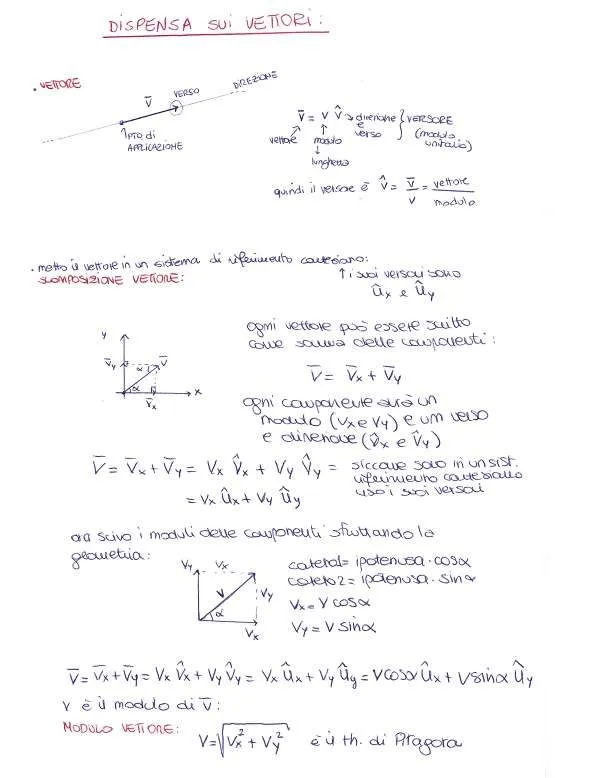 DISPENSA SUI VETTORI:
• VETTORE
V̄ VERSO DIREZIONE
PTO di
APPLICAZIONE
V̄ = V V̂ → direzione e verso } VERSORE (modulo unitario)
vettore modulo
↓
lunghezza
quindi il versore è V̂ = V̄/V = vettore/modulo
• metto il vettore in un sistema di riferimento cartesiano:
↑ i suoi versori sono
Ûx e Ûy
SCOMPOSIZIONE VETTORE:
ogni vettore può essere scritto
come somma delle componenti:
y V̄y V̄ α α V̄x x
V̄ = V̄x + V̄y
ogni componente avrà un
modulo (Vx e Vy) e un verso
e direzione (V̂x e V̂y)
V̄ = V̄x + V̄y = Vx V̂x + Vy V̂y = siccome sono in un sist.
riferimento cartesiano
uso i suoi versori
= Vx Ûx + Vy Ûy
ora scrivo i moduli delle componenti sfruttando la
geometria:
Vy Vx V Vy α Vx
cateto1 = ipotenusa · cosα
cateto2 = ipotenusa · sinα
Vx = V cosα
Vy = V sinα
V̄ = V̄x + V̄y = Vx V̂x + Vy V̂y = Vx Ûx + Vy Ûy = V cosα Ûx + V sinα Ûy
V è il modulo di V̄:
MODULO VETTORE: V = √(Vx² + Vy²) è il th. di Pitagora